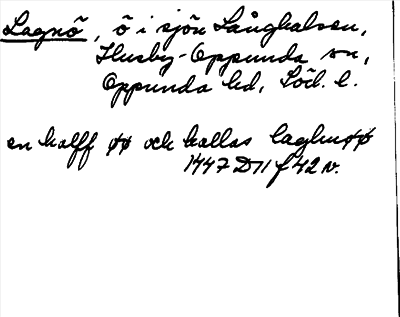 Lagnö, ö i sjön Långhalsen,
Husby-Oppunda sn,
Oppunda hd, Söd. l.
en halff øø och kallas laghnøø
1447 D11 f 42 v.